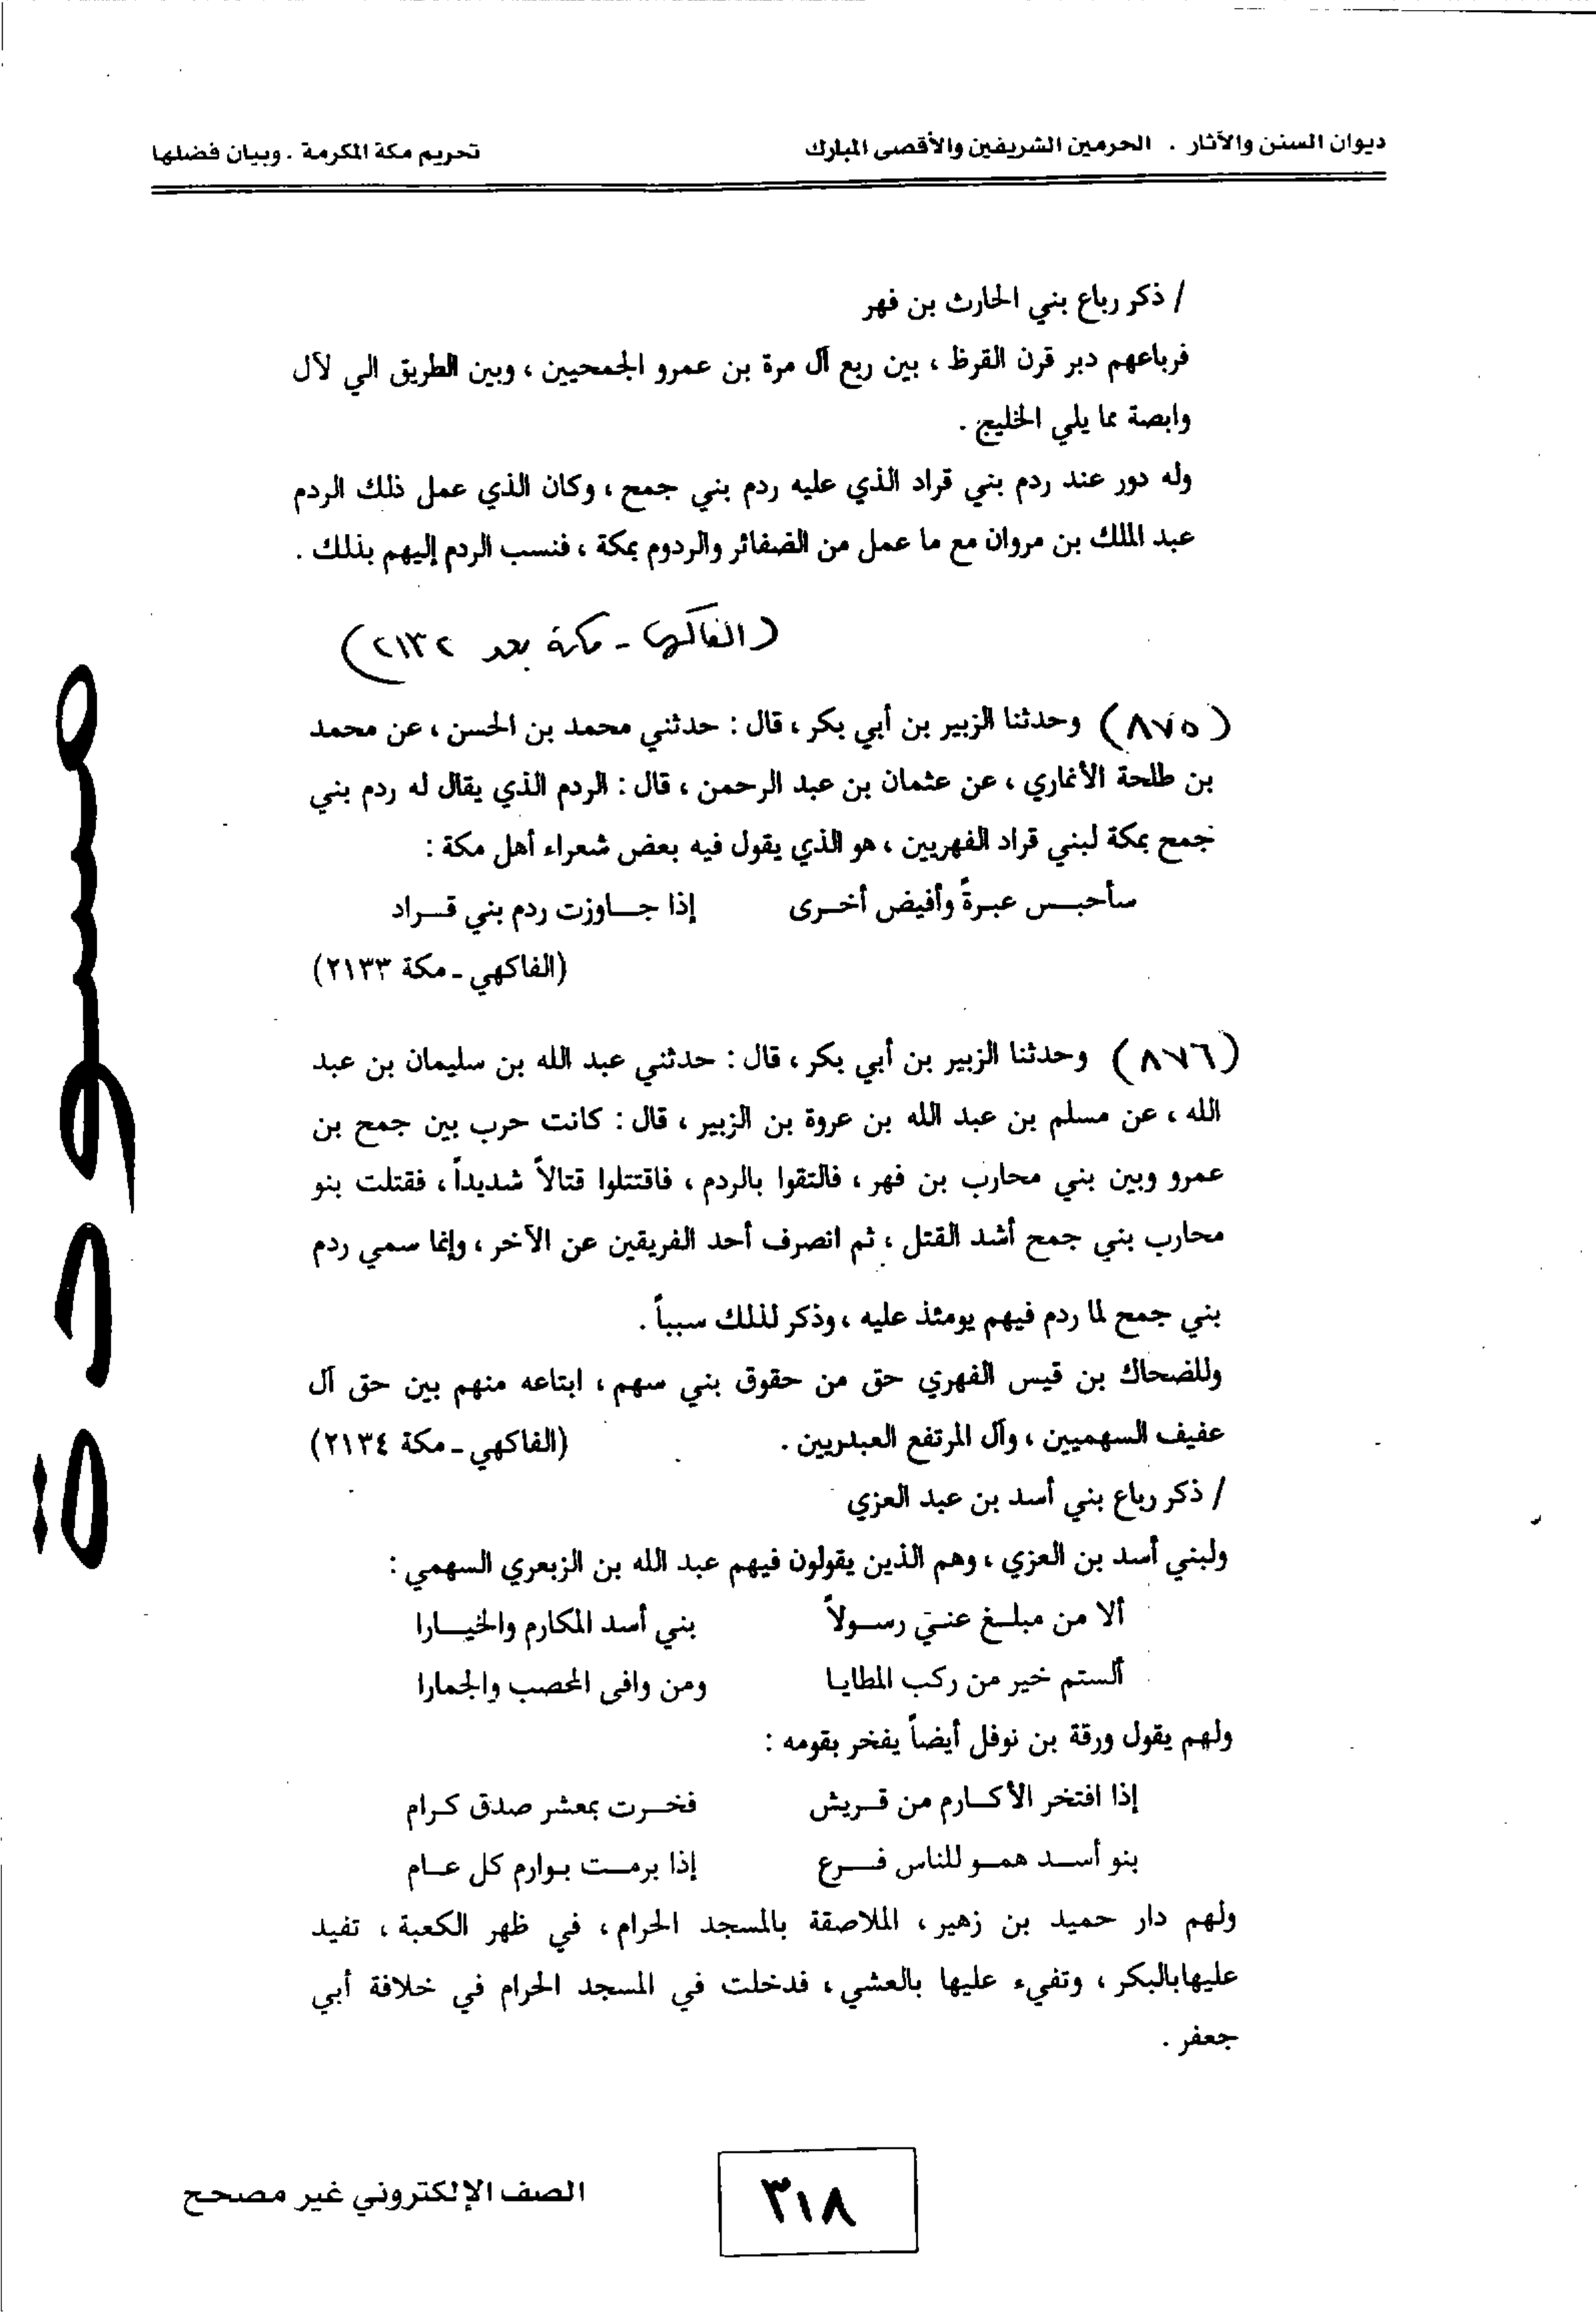 ديوان السنن والآثار . الحرمين الشريفين والأقصى المبارك تحريم مكة المكرمة . وبيان فضلها
/ ذكر رباع بني الحارث بن فهر
فرباعهم دبر قرن القرظ ، بين ربع آل مرة بن عمرو الجمحيين ، وبين الطريق الي لآل
وابصة مما يلي الخليج .
وله دور عند ردم بني قراد الذي عليه ردم بني جمح ، وكان الذي عمل ذلك الردم
عبد الملك بن مروان مع ما عمل من الضفائر والردوم بمكة ، فنسب الردم إليهم بذلك .
(الفاكهي - مكة بعد ٢١٣٢)
(٨٧٥) وحدثنا الزبير بن أبي بكر ، قال : حدثني محمد بن الحسن ، عن محمد
بن طلحة الأنماري ، عن عثمان بن عبد الرحمن ، قال : الردم الذي يقال له ردم بني
جمح بمكة لبني قراد الفهريين ، هو الذي يقول فيه بعض شعراء أهل مكة :
سأحبـــس عبـرةً وأفيض أخـرى إذا جـــاوزت ردم بني قـــراد
(الفاكهي - مكة ٢١٣٣)
(٨٧٦) وحدثنا الزبير بن أبي بكر ، قال : حدثني عبد الله بن سليمان بن عبد
الله ، عن مسلم بن عبد الله بن عروة بن الزبير ، قال : كانت حرب بين جمح بن
عمرو وبين بني محارب بن فهر ، فالتقوا بالردم ، فاقتتلوا قتالاً شديداً ، فقتلت بنو
محارب بني جمح أشد القتل ، ثم انصرف أحد الفريقين عن الآخر ، وإنما سمي ردم
بني جمح لما ردم فيهم يومئذ عليه ، وذكر لذلك سبباً .
وللضحاك بن قيس الفهري حق من حقوق بني سهم ، ابتاعه منهم بين حق آل
عفيف السهميين ، وآل المرتفع العبدريين . (الفاكهي - مكة ٢١٣٤)
/ ذكر رباع بني أسد بن عبد العزي
ولبني أسد بن العزي ، وهم الذين يقولون فيهم عبد الله بن الزبعري السهمي :
ألا من مبلـغ عنـي رسـولاً بني أسد المكارم والخيـــارا
ألستم خير من ركب المطايـا ومن وافى المحصب والجمارا
ولهم يقول ورقة بن نوفل أيضاً يفخر بقومه :
إذا افتخر الأكـــارم من قـريش فخـــرت بمعشر صدق كـرام
بنو أســد همـو للناس فـــرع إذا برمـــت بـوارم كل عـام
ولهم دار حميد بن زهير ، الملاصقة بالمسجد الحرام ، في ظهر الكعبة ، تفيد
عليهابالبكر ، وتفيء عليها بالعشي ، فدخلت في المسجد الحرام في خلافة أبي
جعفر .
مسودة
٣١٨
الصف الإلكتروني غير مصحح